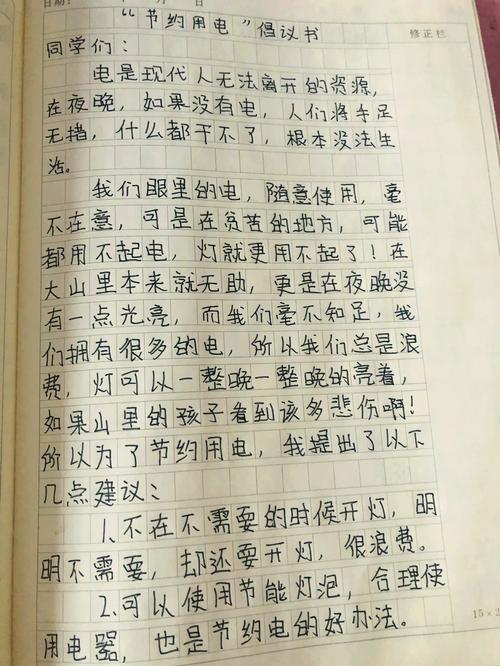 日期： 月 日
修正栏
“节约用电”倡议书
同学们：
电是现代人无法离开的资源，
在夜晚，如果没有电，人们将手足
无措，什么都干不了，根本没法生
活。
我们眼里的电，随意使用，毫
不在意，可是在贫苦的地方，可能
都用不起电，灯就更用不起了！在
大山里本来就无助，更是在夜晚没
有一点光亮，而我们毫不知足，我
们拥有很多的电，所以我们总是浪
费，灯可以一整晚一整晚的亮着，
如果山里的孩子看到该多悲伤啊！
所以为了节约用电，我提出了以下
几点建议：
1.不在不需要的时候开灯，明
明不需要，却还要开灯，很浪费。
2.可以使用节能灯泡，合理使
用电器，也是节约电的好办法。